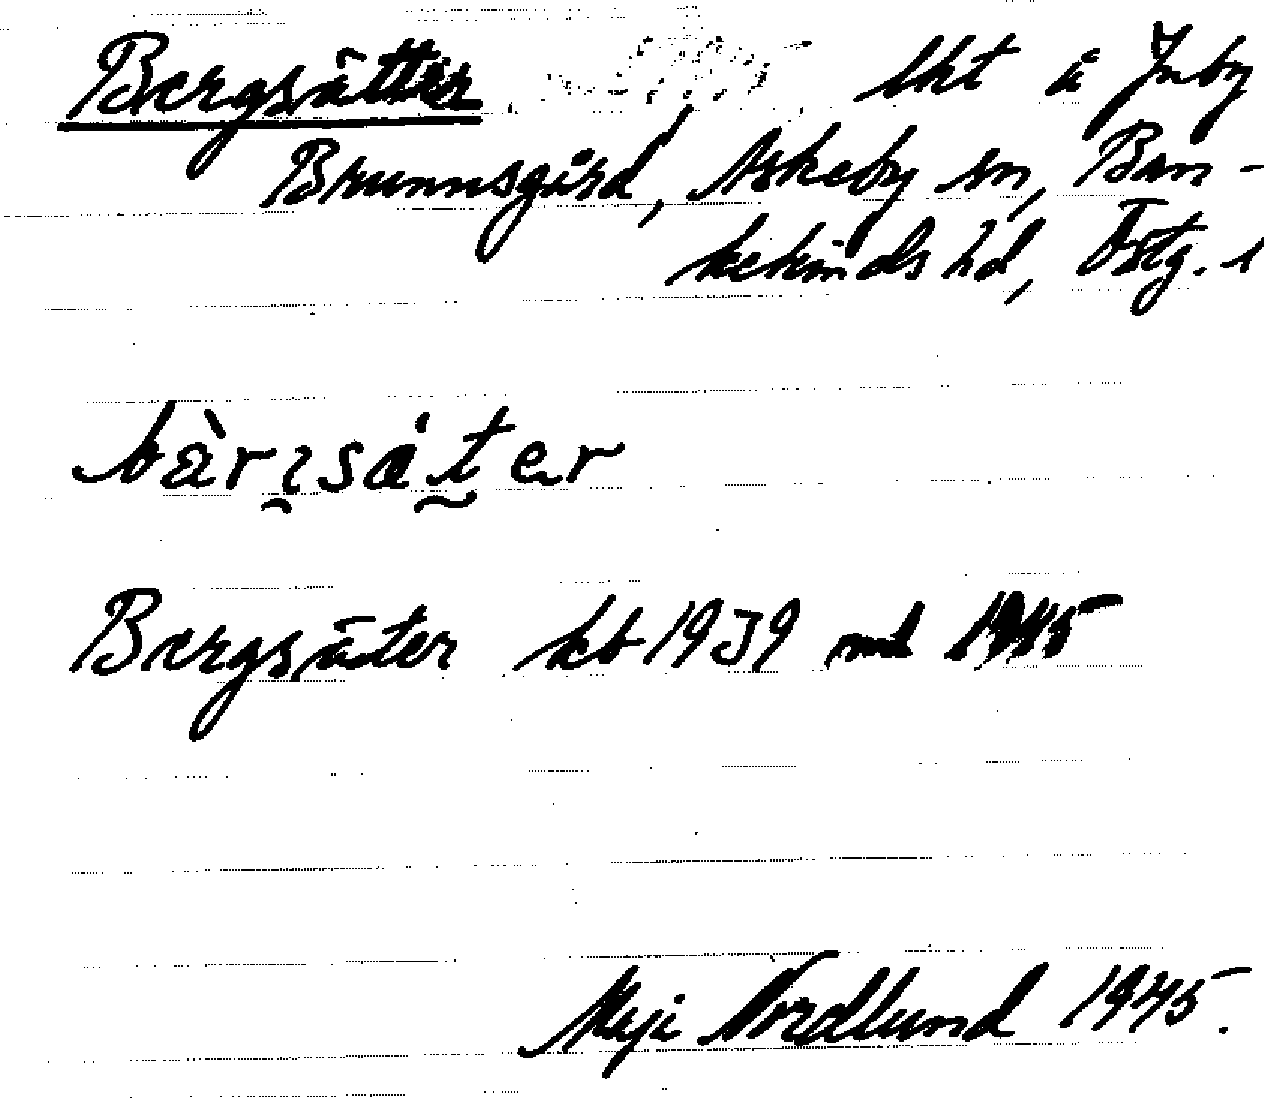 Bergsätter, lht å Juby
Brunnsgård, Askeby sn, Ban-
kekinds hd, Östg. l
bàrɿsäter
Bergsäter kb 1939 ml 1945
Meji Nordlund 1945.